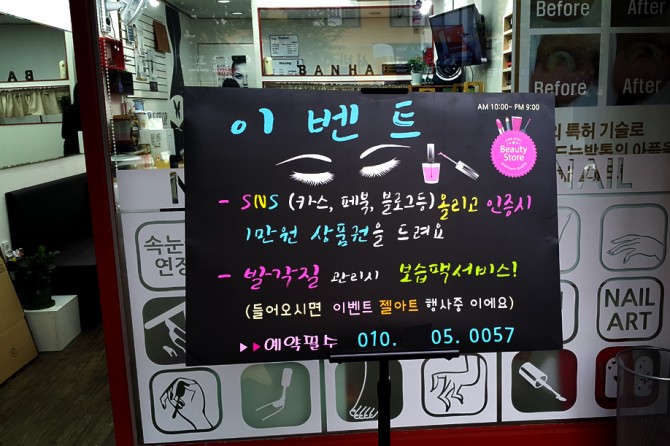 Before
After
Before
After
BANHA
AM 10:00~ PM 9:00
이 벤 트
Beauty
Store
의 특허 기술로
NAIL
- SNS (카스, 페북, 블로그등) 올리고 인증시
1만원 상품권을 드려요
- 발각질 관리시 보습팩서비스!
(들어오시면 이벤트 젤아트 행사중 이에요)
▶▶예약필수 010. 05. 0057
속눈
연장
NAIL
ART